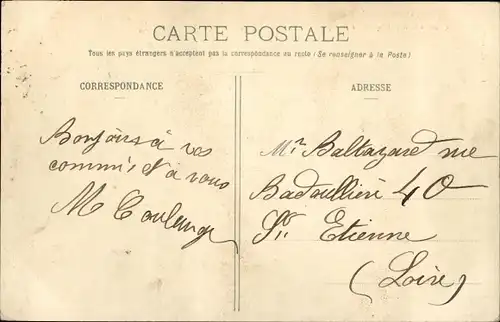 CARTE POSTALE
Tous les pays étrangers n'acceptent pas la correspondance au recto (Se renseigner à la Poste)
CORRESPONDANCE
ADRESSE
Bonjours à vos
commis, et à vous
M Coulange
Mr. Baltazard rue
Badouillière 40
St. Etienne
(Loire)